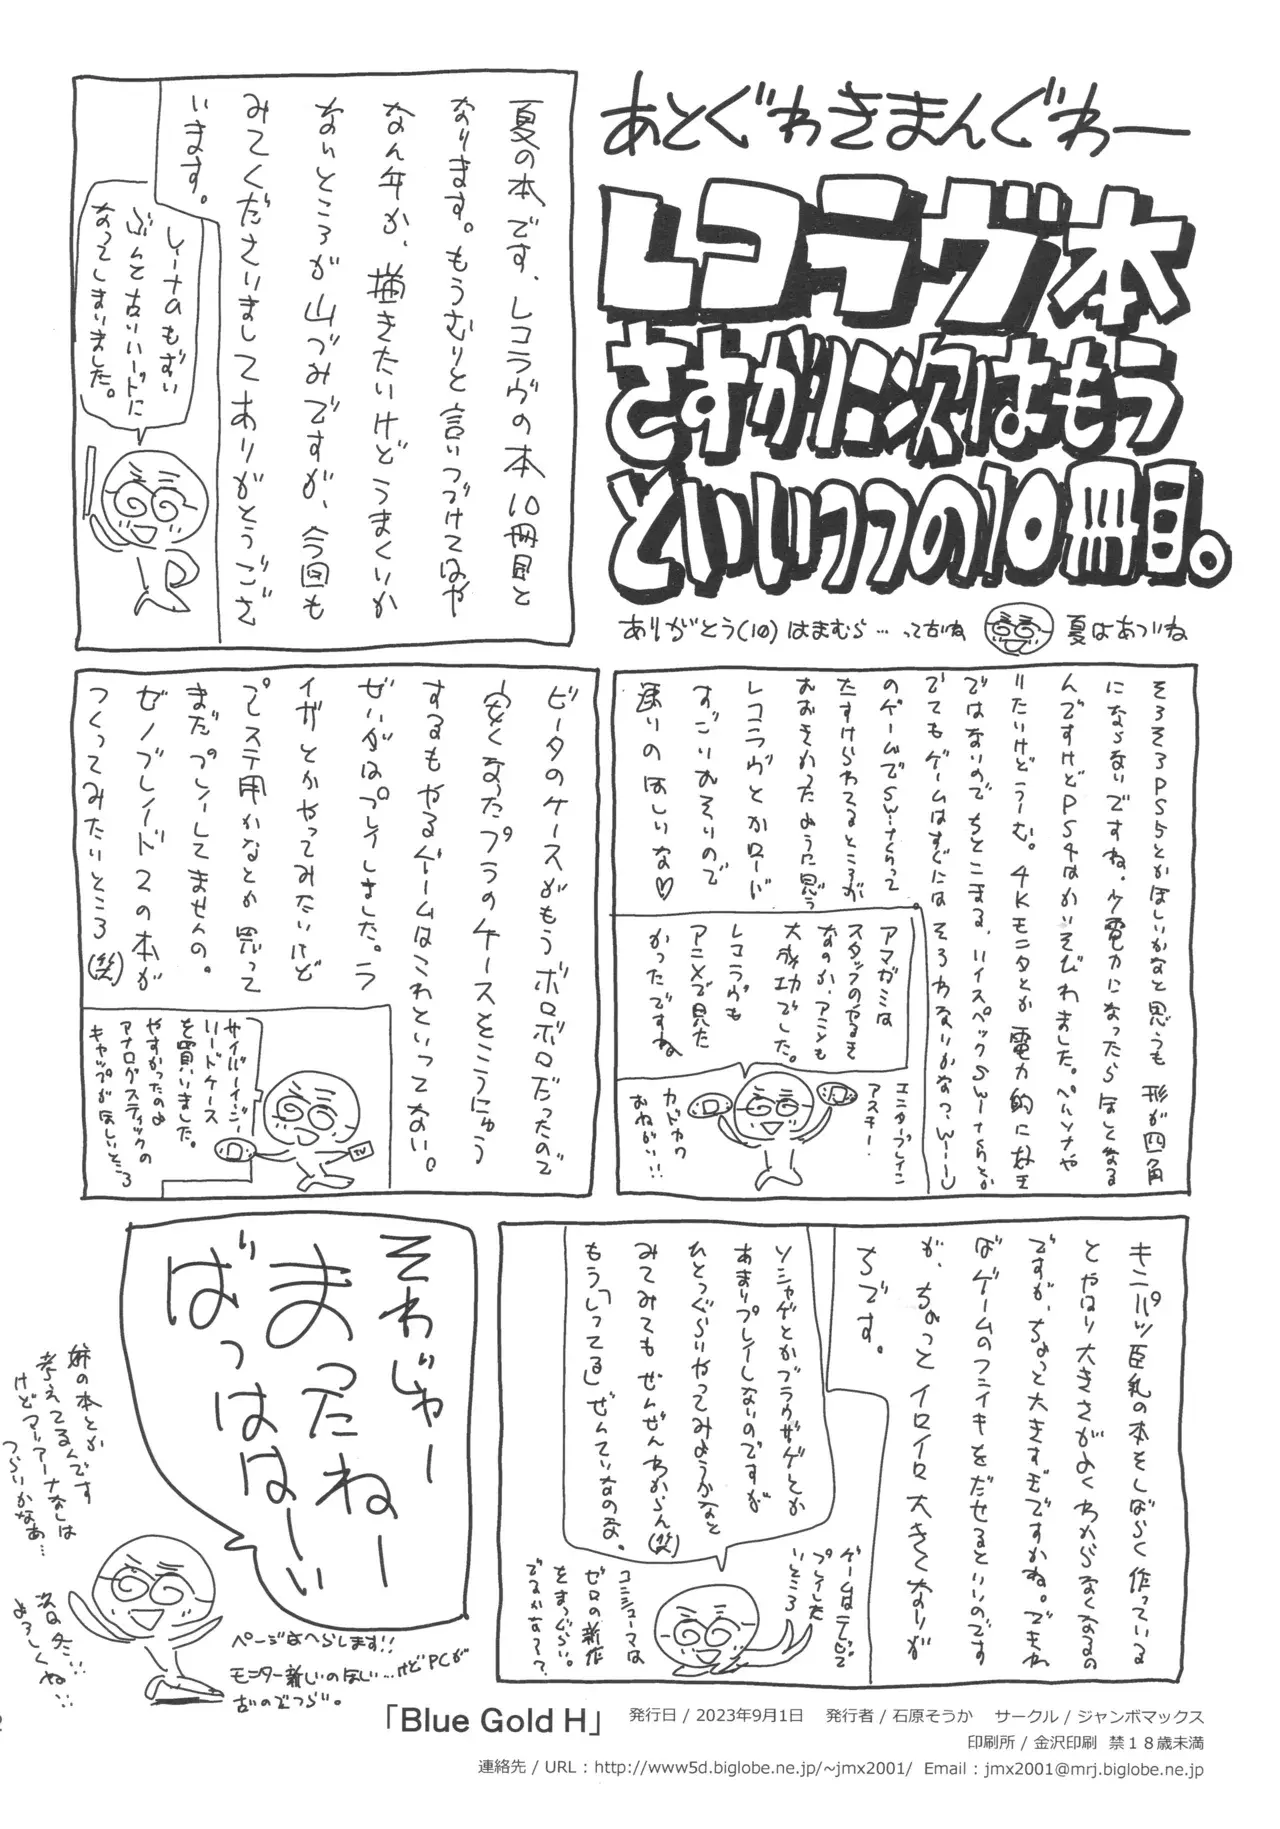 あとぐわきまんぐわー
レコラヴ本
さすがに次はもう
といいつつの10冊目。
ありがとう(10)はまむら…って古いね
夏はあついね
夏の本です、レコラヴの本10冊目と
なります。もうむりと言いつづけてはや
なん年か、描きたいけどうまくいか
ないところが山づみですが、今回も
みてくださいましてありがとうござ
います。
レーナのもずい
ぶんと古いハードに
なってしまいました。
そろそろPS5とかほしいかなと思うも形が四角
にならないですね。少電力になったらほしくなる
んですけどPS4はかいそびれました。ペルソナや
りたいけどうーむ。4Kモニタとか電力的に大丈
ではないのでちとこまる、ハイスペックSwitchとか
でてもゲームはすぐにはそろわないかなっ、Wii U
のゲームでSwitchって
たすけられてるところが
おおきかったように思う
レコラヴとかロード
すごいおそいので
速いのほしいな♡
アマガミは
スタッフのやるき
なのか、アニメも
大成功でした。
レコラヴも
アニメで見た
かったですね
エンターブレイン
アスキー
カドカワ
おねがい!!
ビータのケースがもうボロボロだったので
安くなったプラのケースをこうにゅう
するもやるゲームはこれといってない。
ぜいがはプレイしました。ラ
イザとかやってみたいけど
プレステ用かなとか思って
まだプレーしてませんの。
ゼノブレイド2の本が
つくってみたいところ(笑)
サイバーイジー
ハードケース
を買いました。
やすかったのよ
アナログスティックの
キャップがほしいところ
TV
キンパツ巨乳の本をしばらく作っている
とやはり大きさがよくわからなくなるの
ですが、ちょっと大きすぎですかね。でもわ
ばゲームのフンイキをだせるといいのです
が、ちょっとイロイロ大きくなりが
ちです。
ソシャゲとかブラウザゲとか
あまりプレイしないのですが
ひとつぐらいやってみようかなと
みてみてもぜんぜんわからん(笑)
もう「いってる」ぜんていなのな。
ゲームはテレビで
プレイしたい
ところ
コンシューマは
ゼロの新作
をまつぐらい。
でるかなぁ??
それじゃー
まったねー
ばっははーい
妹の本とか
考えてるんです
けどマリアーナなしは
つらいかなぁ…
次は冬!!
よろしくね!!
ページはへらします!!
モニター新しいのほしい…けどPCが
古のでつらい。
「Blue Gold H」
発行日 / 2023年9月1日 発行者 / 石原そうか サークル / ジャンボマックス
印刷所 / 金沢印刷 禁18歳未満
連絡先 / URL : http://www5d.biglobe.ne.jp/~jmx2001/ Email : jmx2001@mrj.biglobe.ne.jp
2